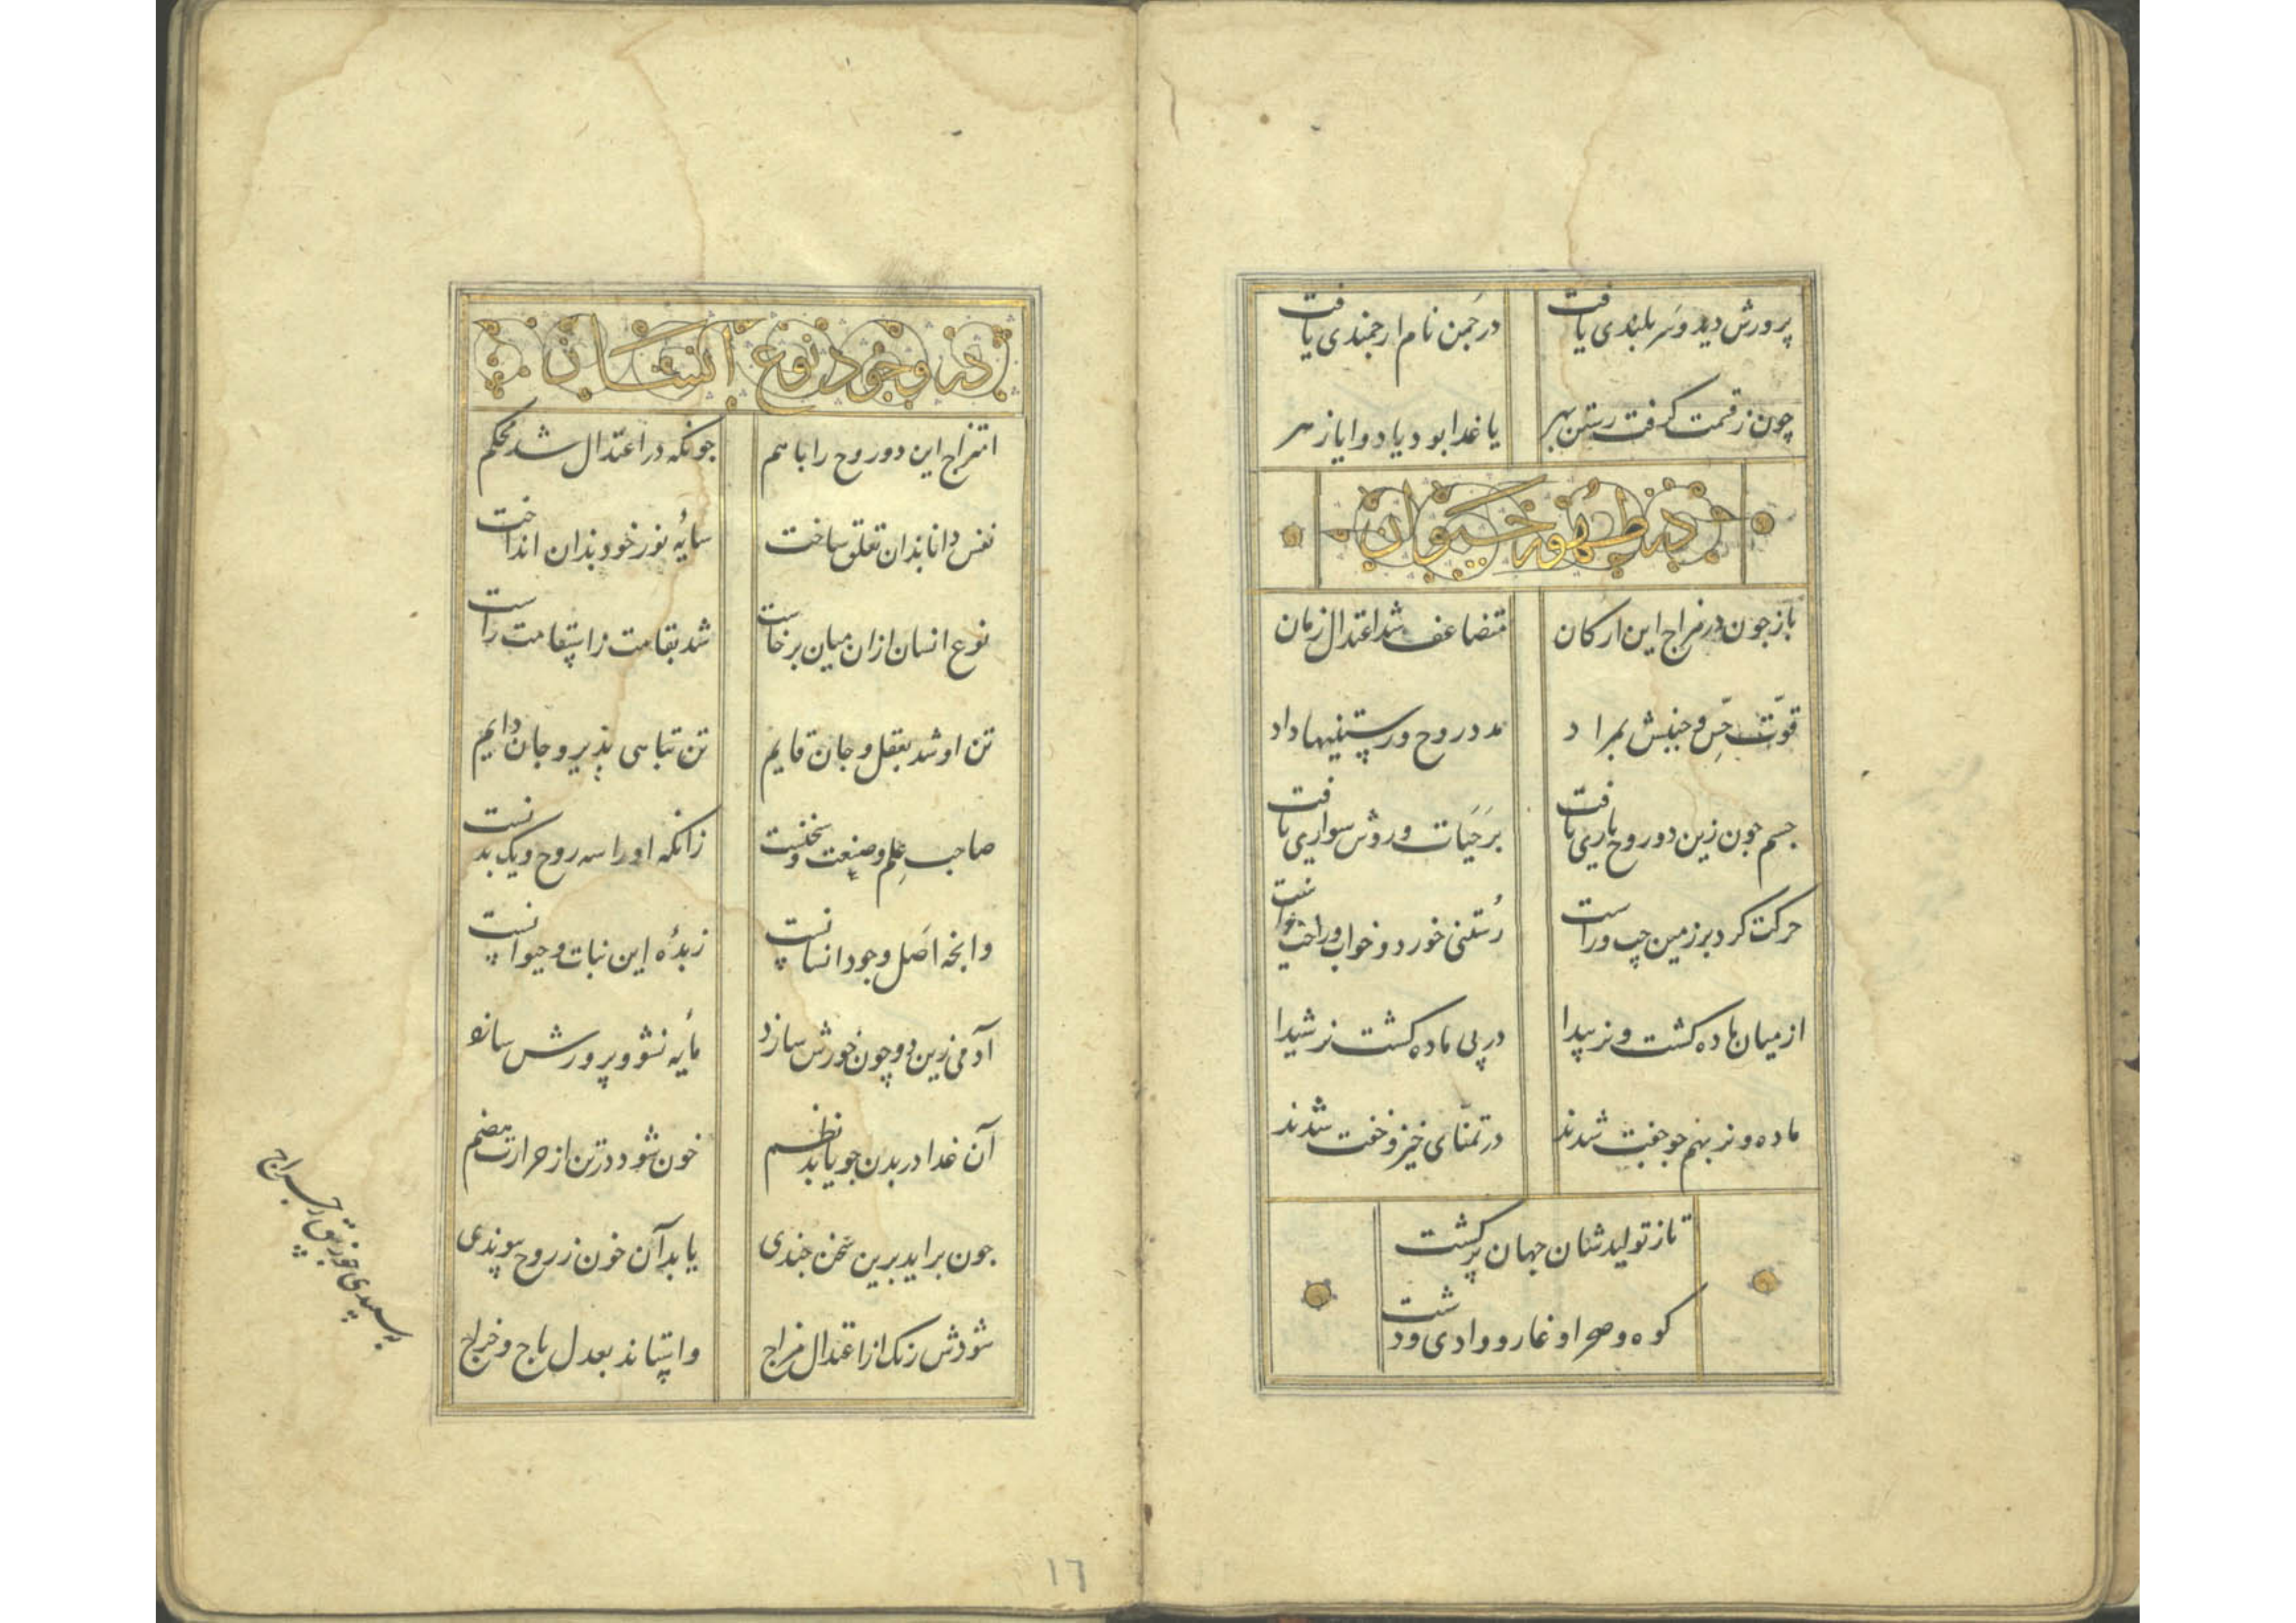 پرورش دید و سر بلندی یافت در چمن نام ارجمندی یافت
چون ز قسمت کرفت رستن بهر یا غدا بود یا دوا یا زهر
در ظهور حیوان
باز جون در مزاج این ارکان متضاعف شد اعتدال زمان
قوّت حسّ و جنبش بمراد مدد روح و رستنیها داد
جسم جون زین دو روح یاری یافت بر حَیَات و روش سواری یافت
حرکت کرد بر زمین چپ و راست رُستنی خورد و خواب و راحت خواست
از میان ماده کشت و نر پیدا در پی ماده کشت نر شیدا
ماده و نر بهم جو جفت شدند در تمنّای خیز و خفت شدند
تا ز تولیدشان جهان پر کشت
کوه و صحرا و غار و وادی و دشت
در وجود نوع انسان
امتزاج این دو روح را با هم جونکه در اعتدال شد محکم
نفس دانا بدان تعلق ساخت سایهٔ نور خود بدان انداخت
نوع انسان از ان میان برخاست شد بقامت ز استقامت راست
تن او شد بعقل و جان قایم تن تباهی پذیر و جان دایم
صاحب عِلم و صنعت و سخنست زانکه او را سه روح و یک بدنست
وانجه اصَل وجود انسانست زبدهٔ این نبات و حیوانست
آدمی زین دو چون خورش سازد مایهٔ نشو و پرورش سازد
آن غدا در بدن جو یابد نظم خون شود در تن از حرارت هضم
جون براید برین سَخن جندی یابد آن خون ز روح پیوندی
شودش رنک از اعتدال مزاج واستاند بعدل باج و خراج
بسپیدی خون
١٦